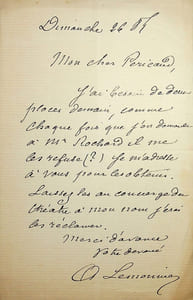 Dimanche 26
Mon cher Péricaud,
J'ai besoin de deux
places demain, comme
chaque fois que j'en demande
à Mr Rochard il me
les refuse (?) je m'adresse
à vous pour les obtenir.
Laissez les au concierge du
théâtre à mon nom j'irai
les réclamer.
Merci d'avance
Votre dévoué
Lemonnier